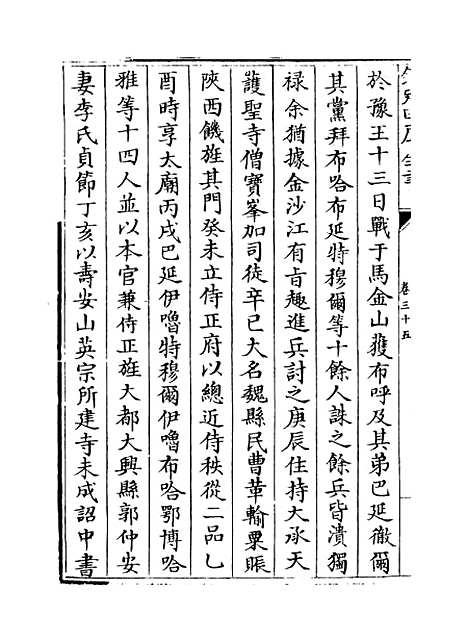 欽定四庫全書
卷三十五
於豫王十三日戰于馬金山獲布呼及其弟巴延徹爾
其黨拜布哈布延特穆爾等十餘人誅之餘兵皆潰獨
祿余猶據金沙江有旨趣進兵討之庚辰住持大承天
護聖寺僧寶峯加司徒辛巳大名魏縣民曹革輸粟賑
陜西饑旌其門癸未立侍正府以總近侍秩從二品乙
酉時享太廟丙戌巴延伊嚕特穆爾伊嚕布哈鄂博哈
雅等十四人並以本官兼侍正旌大都大興縣郭仲安
妻李氏貞節丁亥以壽安山英宗所建寺未成詔中書